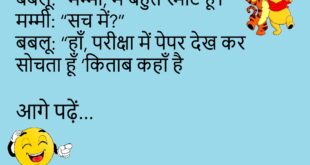 बबलू: “मम्मी, मैं बहुत स्मार्ट हूँ।”
मम्मी: “सच में?”
बबलू: “हाँ, परीक्षा में पेपर देख कर
सोचता हूँ ‘किताब कहाँ है
आगे पढ़ें...